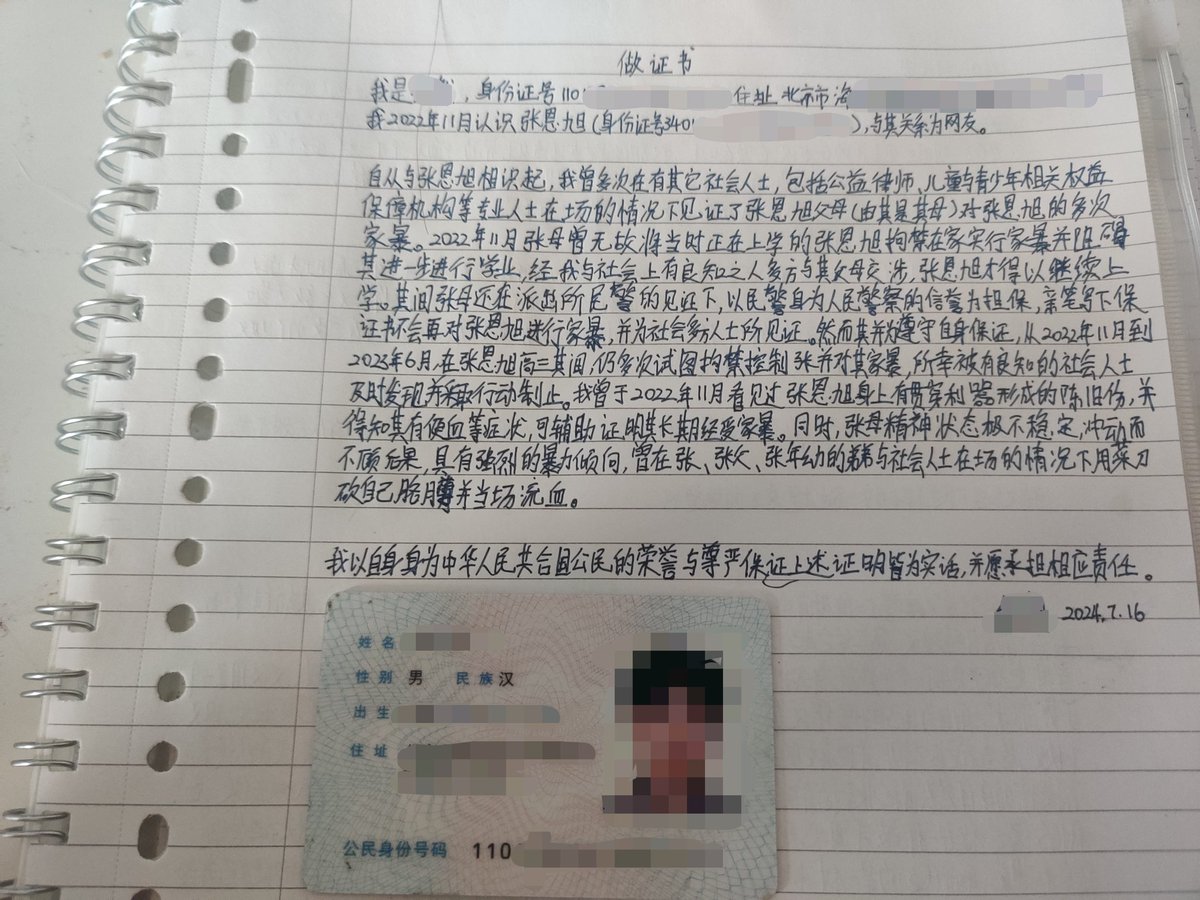 做证书
我是 ，身份证号110 住址 北京市海
我2022年11月认识张恩旭(身份证号340 ),与其关系为网友。
自从与张恩旭相识起，我曾多次在有其它社会人士，包括公益律师、儿童与青少年相关权益
保障机构等专业人士在场的情况下见证了张恩旭父母(尤其是其母)对张恩旭的多次
家暴。2022年11月张母曾无故将当时正在上学的张恩旭拘禁在家实行家暴并阻碍
其进一步进行学业，经我与社会上有良知之人多方与其父母交涉，张恩旭才得以继续上
学。其间张母还在派出所民警的见证下，以民警身为人民警察的信誉为担保，亲笔写下保
证书不会再对张恩旭进行家暴，并为社会多方人士所见证。然而其并为遵守自身保证，从2022年11月到
2023年6月，在张恩旭高三其间，仍多次试图拘禁控制张并对其家暴，所幸被有良知的社会人士
及时发现并采取行动制止。我曾于2022年11月看见过张恩旭身上有贯穿利器形成的陈旧伤，并
得知其有便血等症状，可辅助证明其长期经受家暴。同时，张母精神状态极不稳定，冲动而
不顾后果，具有强烈的暴力倾向，曾在张、张父、张年幼的弟弟与社会人士在场的情况下用菜刀
砍自己胳膊并当场流血。
我以自身身为中华人民共合国公民的荣誉与尊严保证上述证明皆为实话，并愿承担相应责任。
2024.7.16
姓名
性别 男 民族 汉
出生
住址
公民身份号码 110